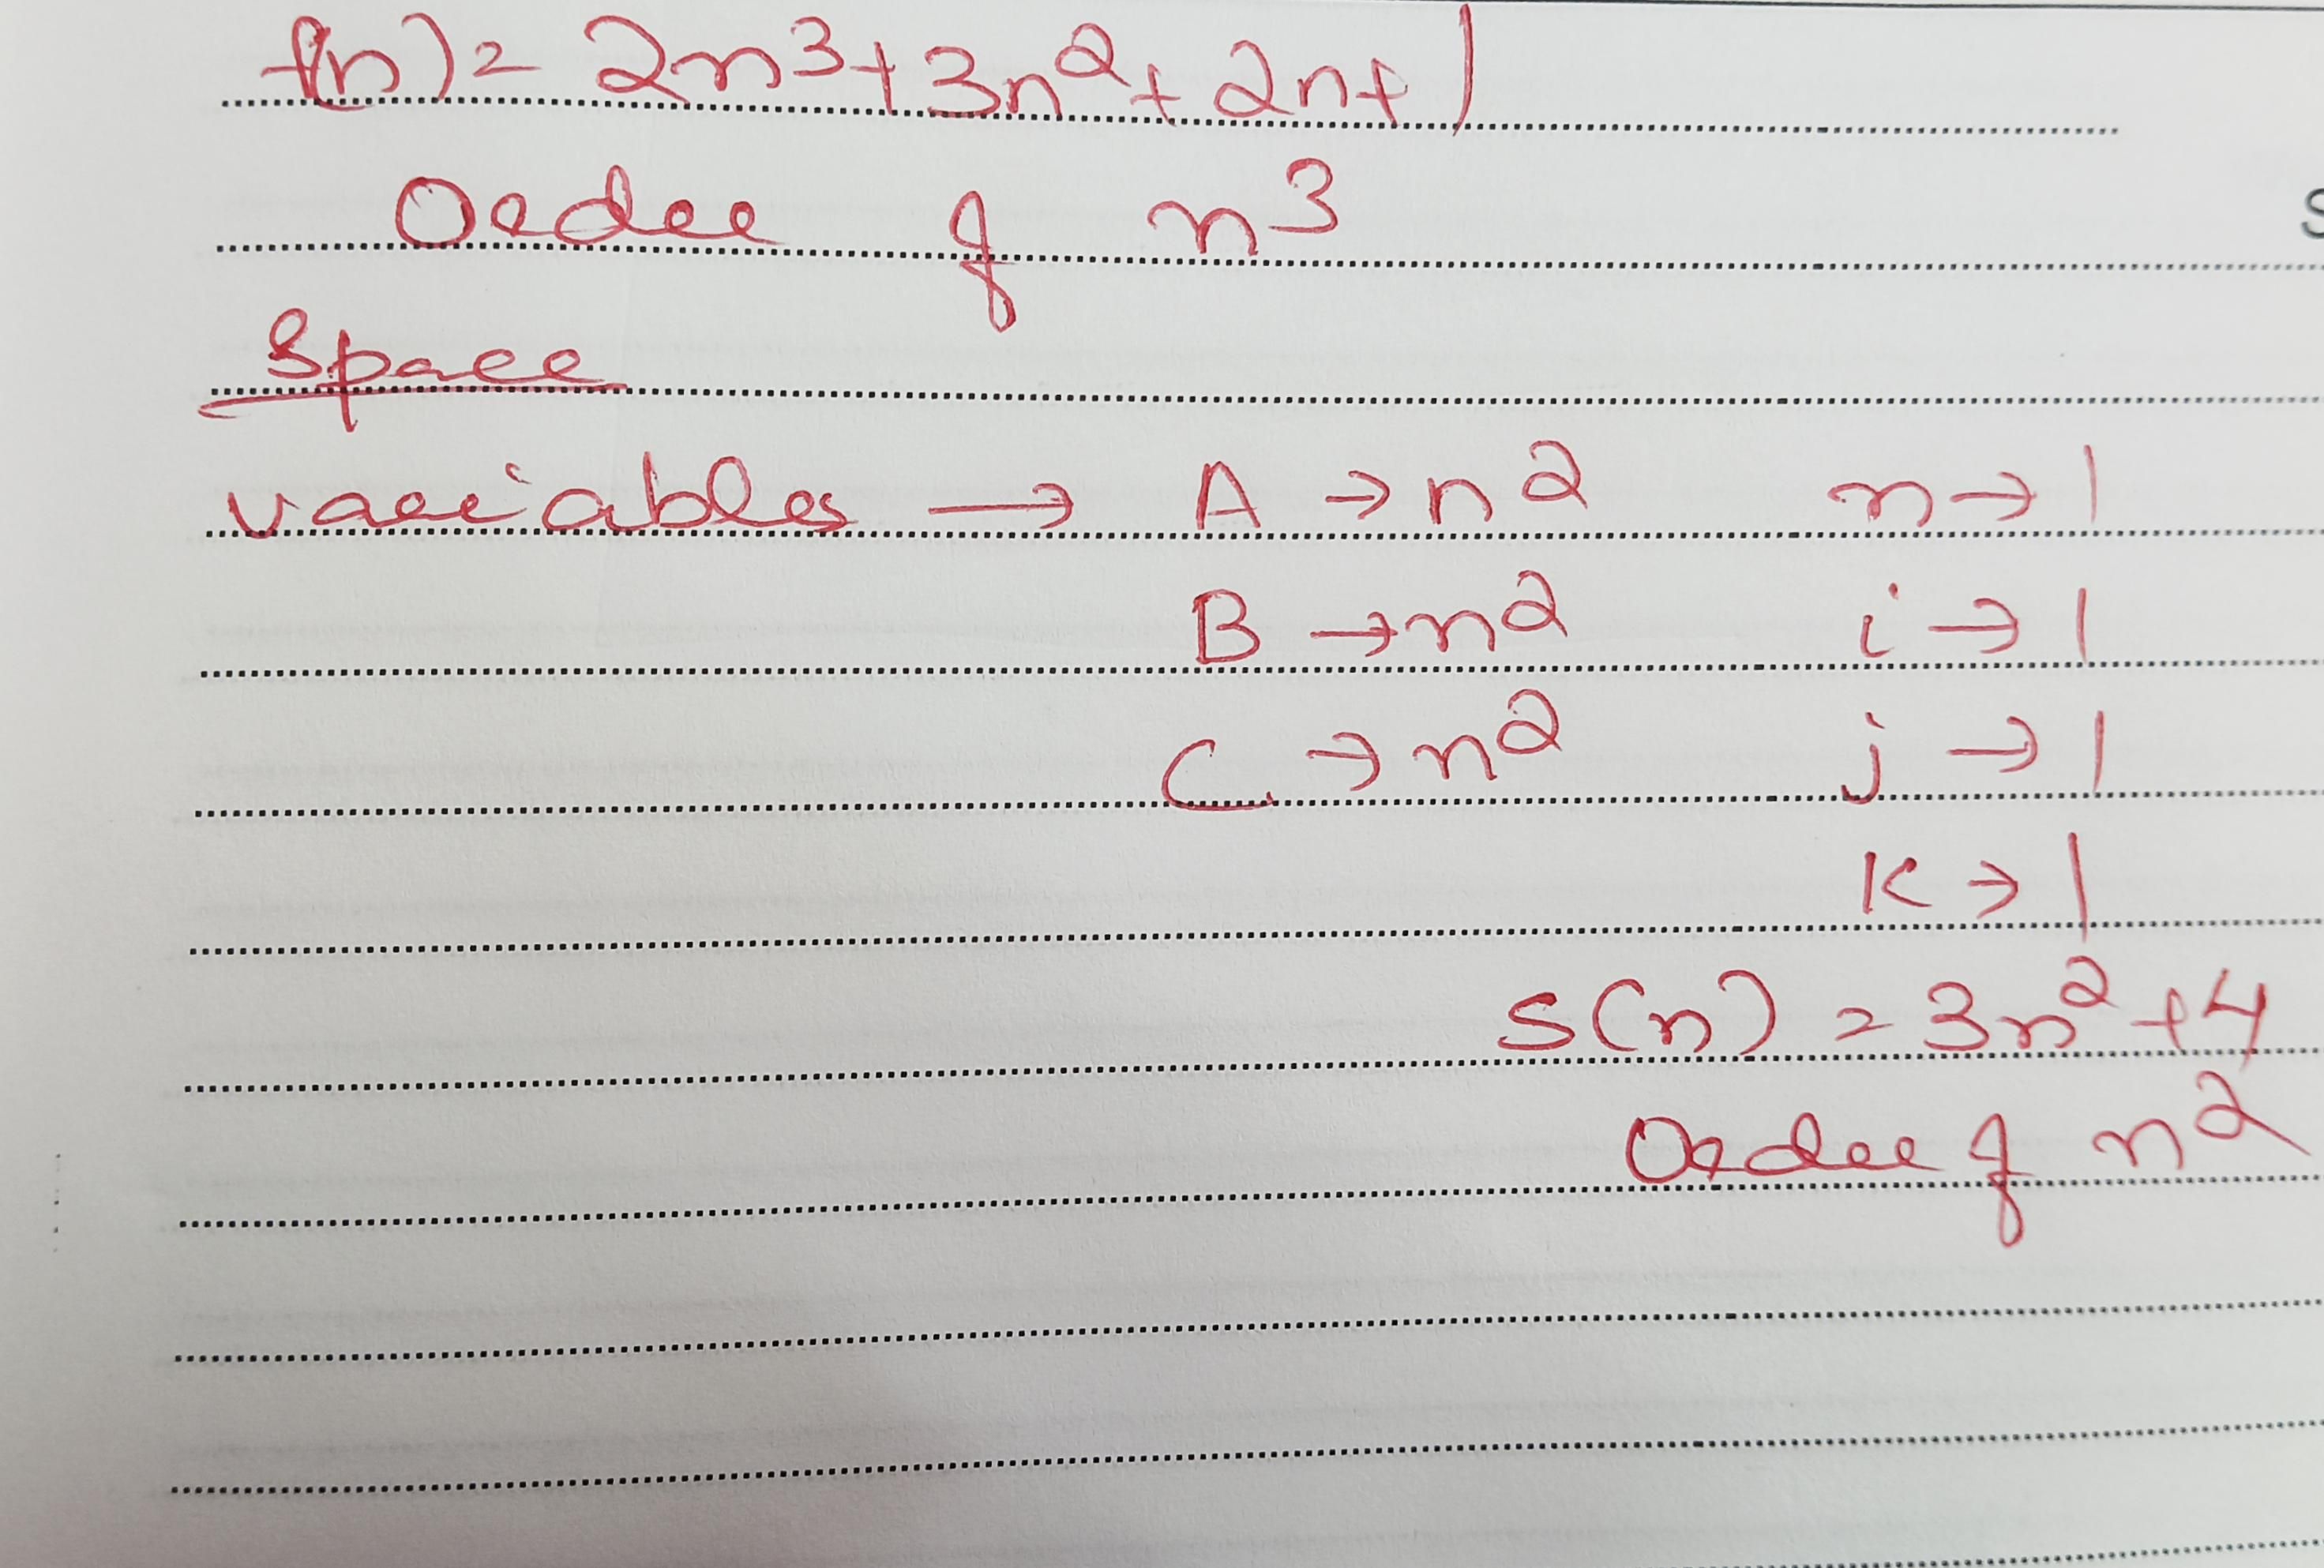 f(n) = 2n³ + 3n² + 2n + 1
Order of n³
Space
variables → A → n² n → 1
B → n² i → 1
C → n² j → 1
K → 1
S(n) = 3n² + 4
Order of n²